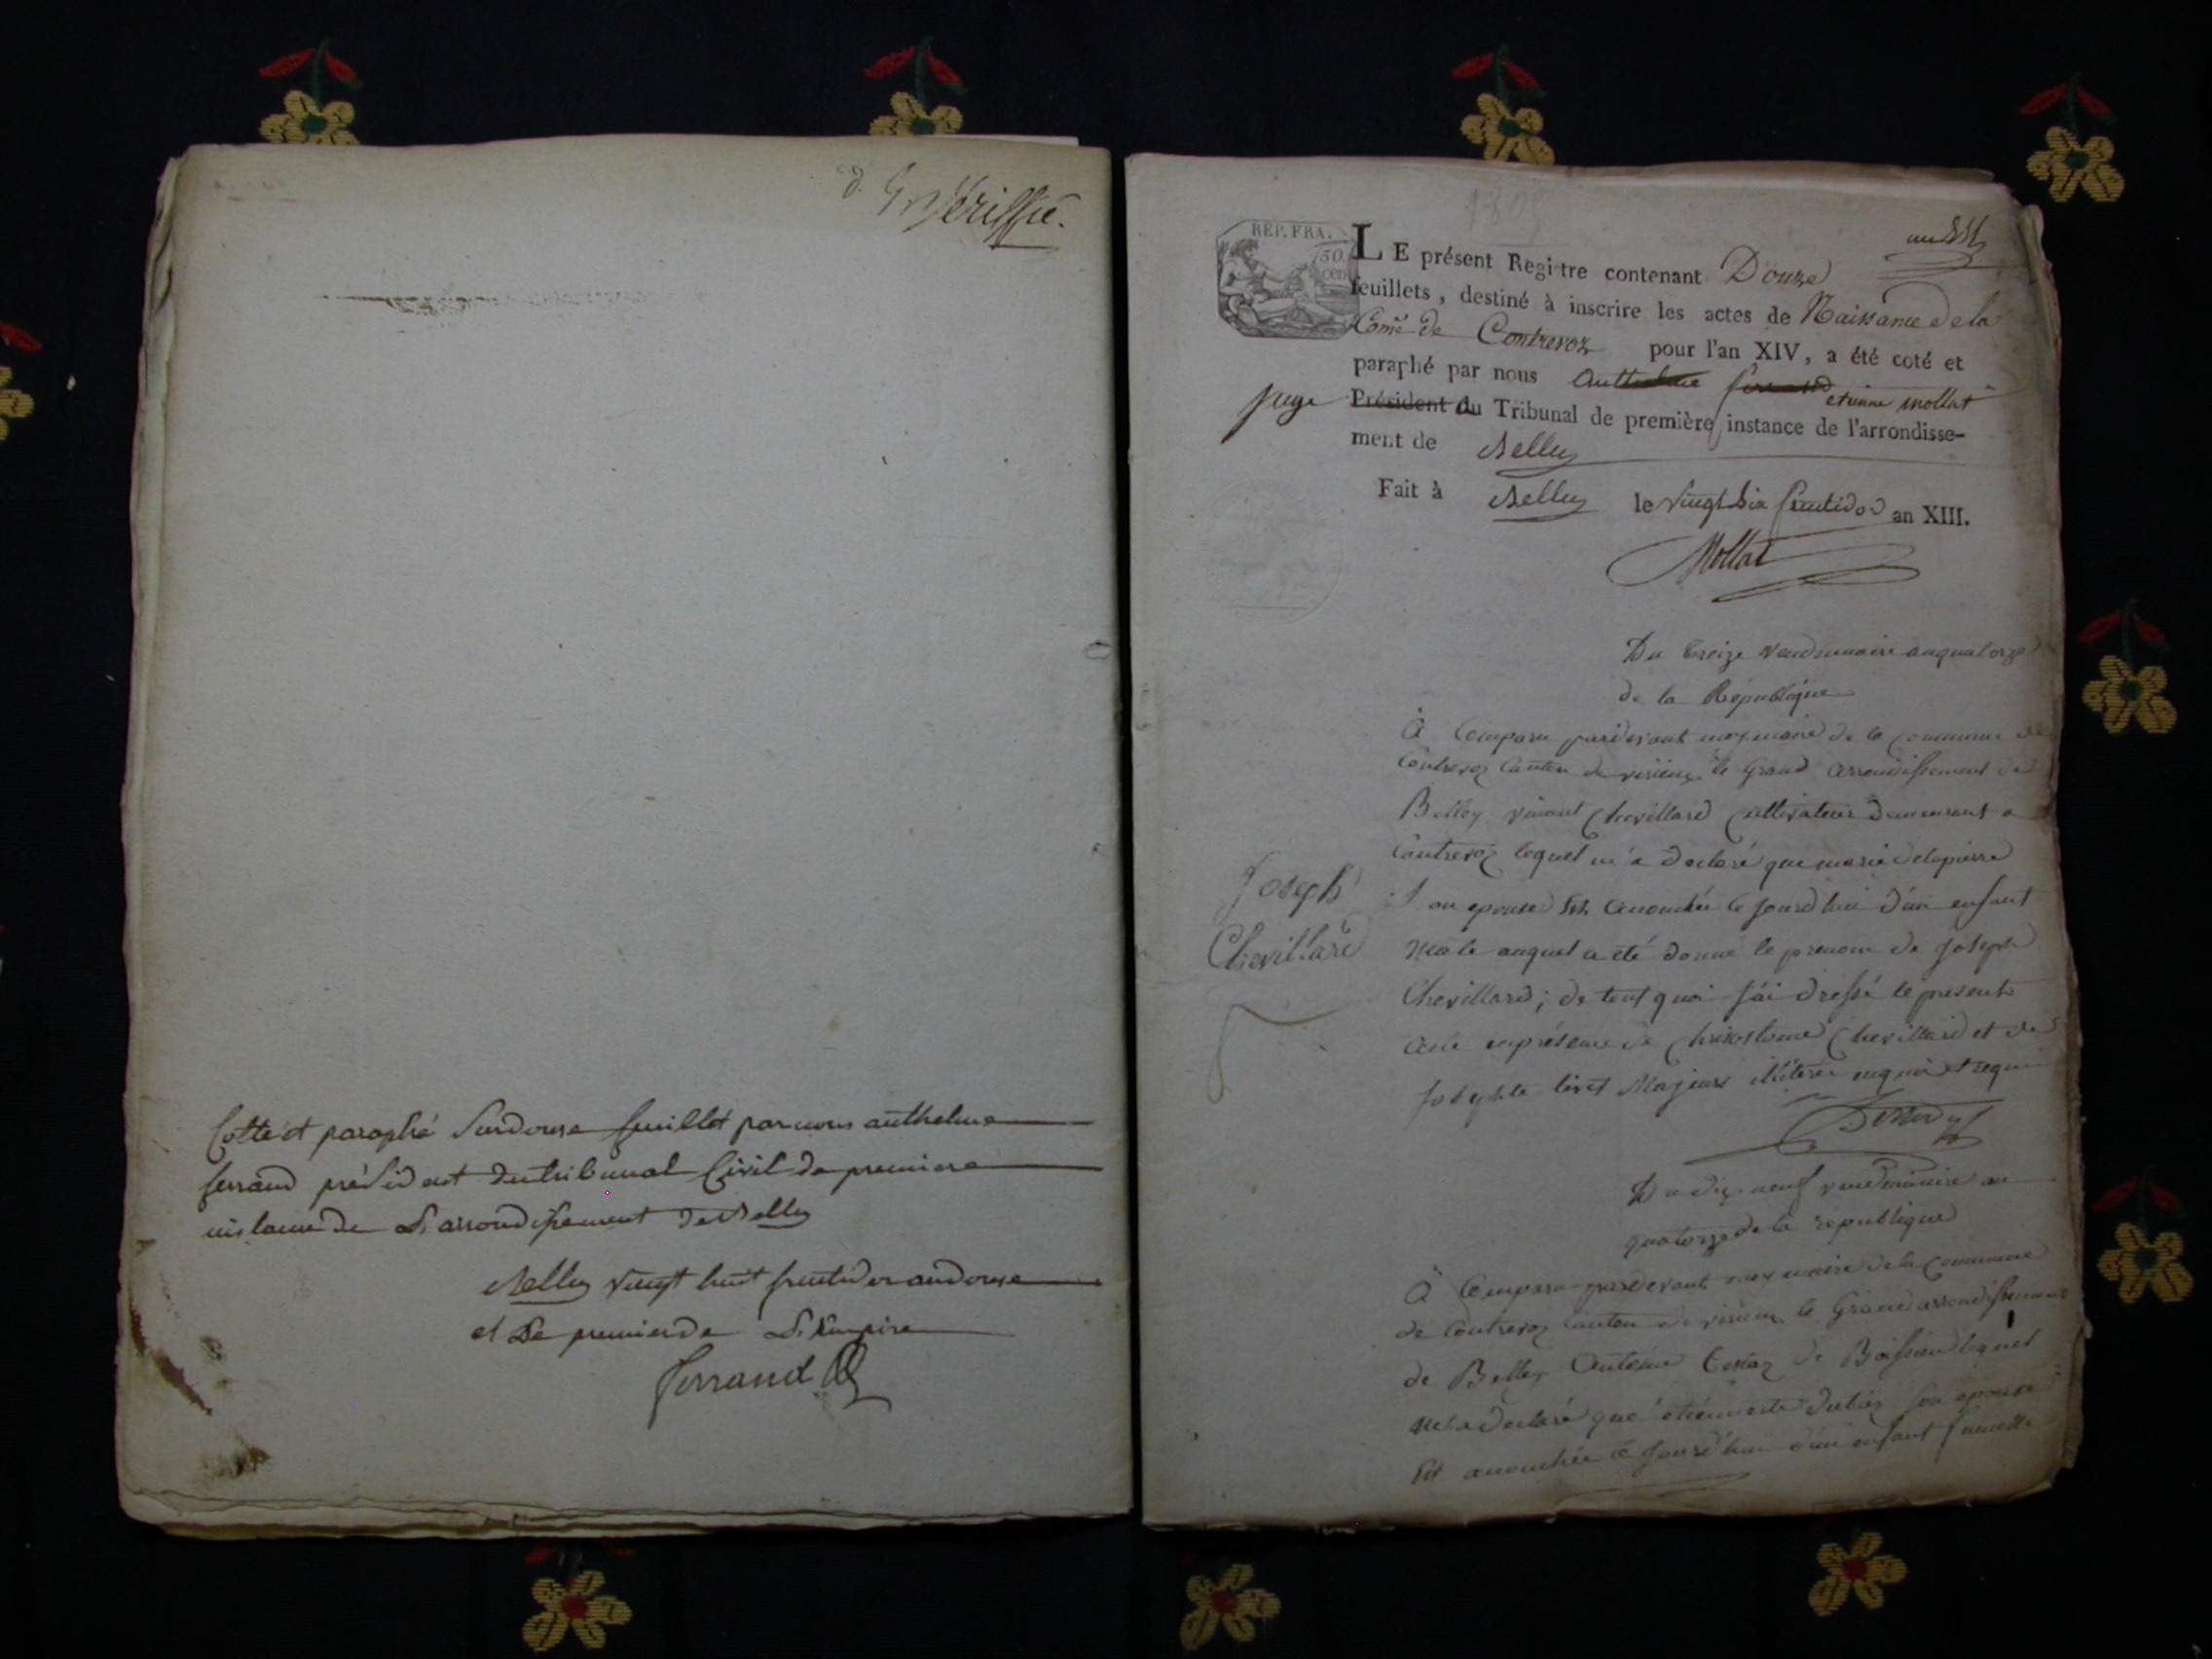 Vériffié.
Cotté et paraphé Surdouse feuillet par nous anthelme
ferrand président du tribunal Civil de premiere
instance de L'arrondissement de Belley
Belley vingt huit fructidor an douse
et Le premier de L'Empire
ferrand
1805
REP. FRA.
50
cen
LE présent Registre contenant Douze
feuillets, destiné à inscrire les actes de Naissance de la
Come de Contrevoz pour l'an XIV, a été coté et
paraphé par nous Anthelme ferrand etienne mollat
juge Président du Tribunal de première instance de l'arrondisse-
ment de Belley
Fait à Belley le vingt Six fructidor an XIII.
Mollat
Du treize vendemiaire an quatorze
de la République
A Comparu pardevant moy maire de la commune de
Contrevoz Canton de virieux le Grand arrondissement de
Belley vincent Chevillard cultivateur Demeurant a
Contrevoz lequel m'a declaré que marie delapierre
Son epouse Est accouchée ce jourd'hui d'un enfant
Joseph
Chevillard
Male auquel a été donné le prenom de Joseph
Chevillard; de tout quoi j'ai dressé le present
acte en présence de Chrisostome Chevillard et de
Joseph Majeurs illiterés enquis et requis
Du dix neuf vendemiaire an
quatorze de la republique
A Comparu pardevant moy maire de la Commune
de Contrevoz canton de virieux le Grand arrondissement
de Belley de Boissieu lequel
m'a declaré que son epouse
Est accouchée ce Jourd'hui d'un enfant femelle